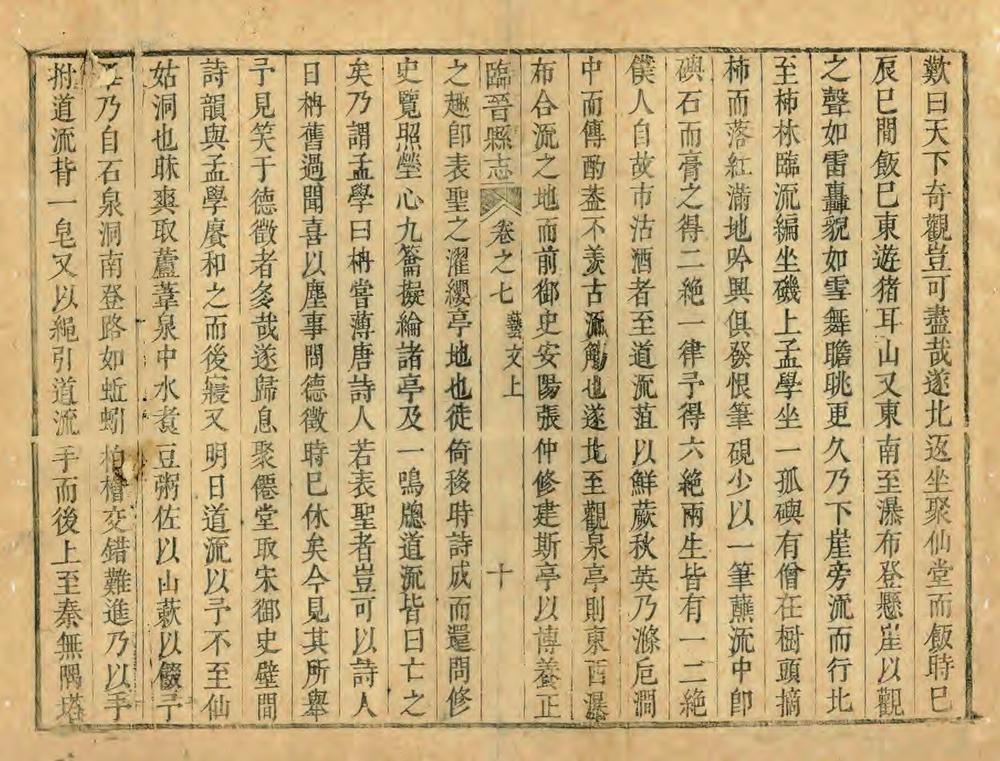 歎曰天下奇觀豈可盡哉遂北返坐聚仙堂而飯時巳
辰巳間飯巳東遊猪耳山又東南至瀑布登懸崖以觀
之聲如雷轟貌如雪舞瞻眺更久乃下崖旁流而行北
至柿林臨流編坐磯上孟學坐一孤礇有僧在樹頭摘
柿而落紅滿地吟興俱發恨筆硯少以一筆蘸流中卽
礇石而膏之得二絶一律予得六絶兩生皆有一二絶
僕人自故市沽酒者至道流葅以鮮蕨秋英乃滌卮澗
中而傳酌葢不羨古流觴也遂北至觀泉亭則東西瀑
布合流之地而前御史安陽張仲修建斯亭以博養正
臨晉縣志 卷之七 藝文上 十
之趣卽表聖之濯纓亭地也徒倚移時詩成而還問修
史覽照瑩心九籥擬綸諸亭及一鳴牕道流皆曰亡之
矣乃謂孟學曰枏嘗薄唐詩人若表聖者豈可以詩人
日枏舊過聞喜以塵事問德徵時已休矣今見其所舉
予見笑于德徵者多哉遂歸息聚僊堂取宋御史壁間
詩韻與孟學賡和之而後寢又明日道流以予不至仙
姑洞也昧爽取蘆葦泉中水煮豆粥佐以山蔌以餟予
乃自石泉洞南登路如蚯蚓柏檜交錯難進乃以手
拊道流背一皂又以繩引道流手而後上至秦無隅塔